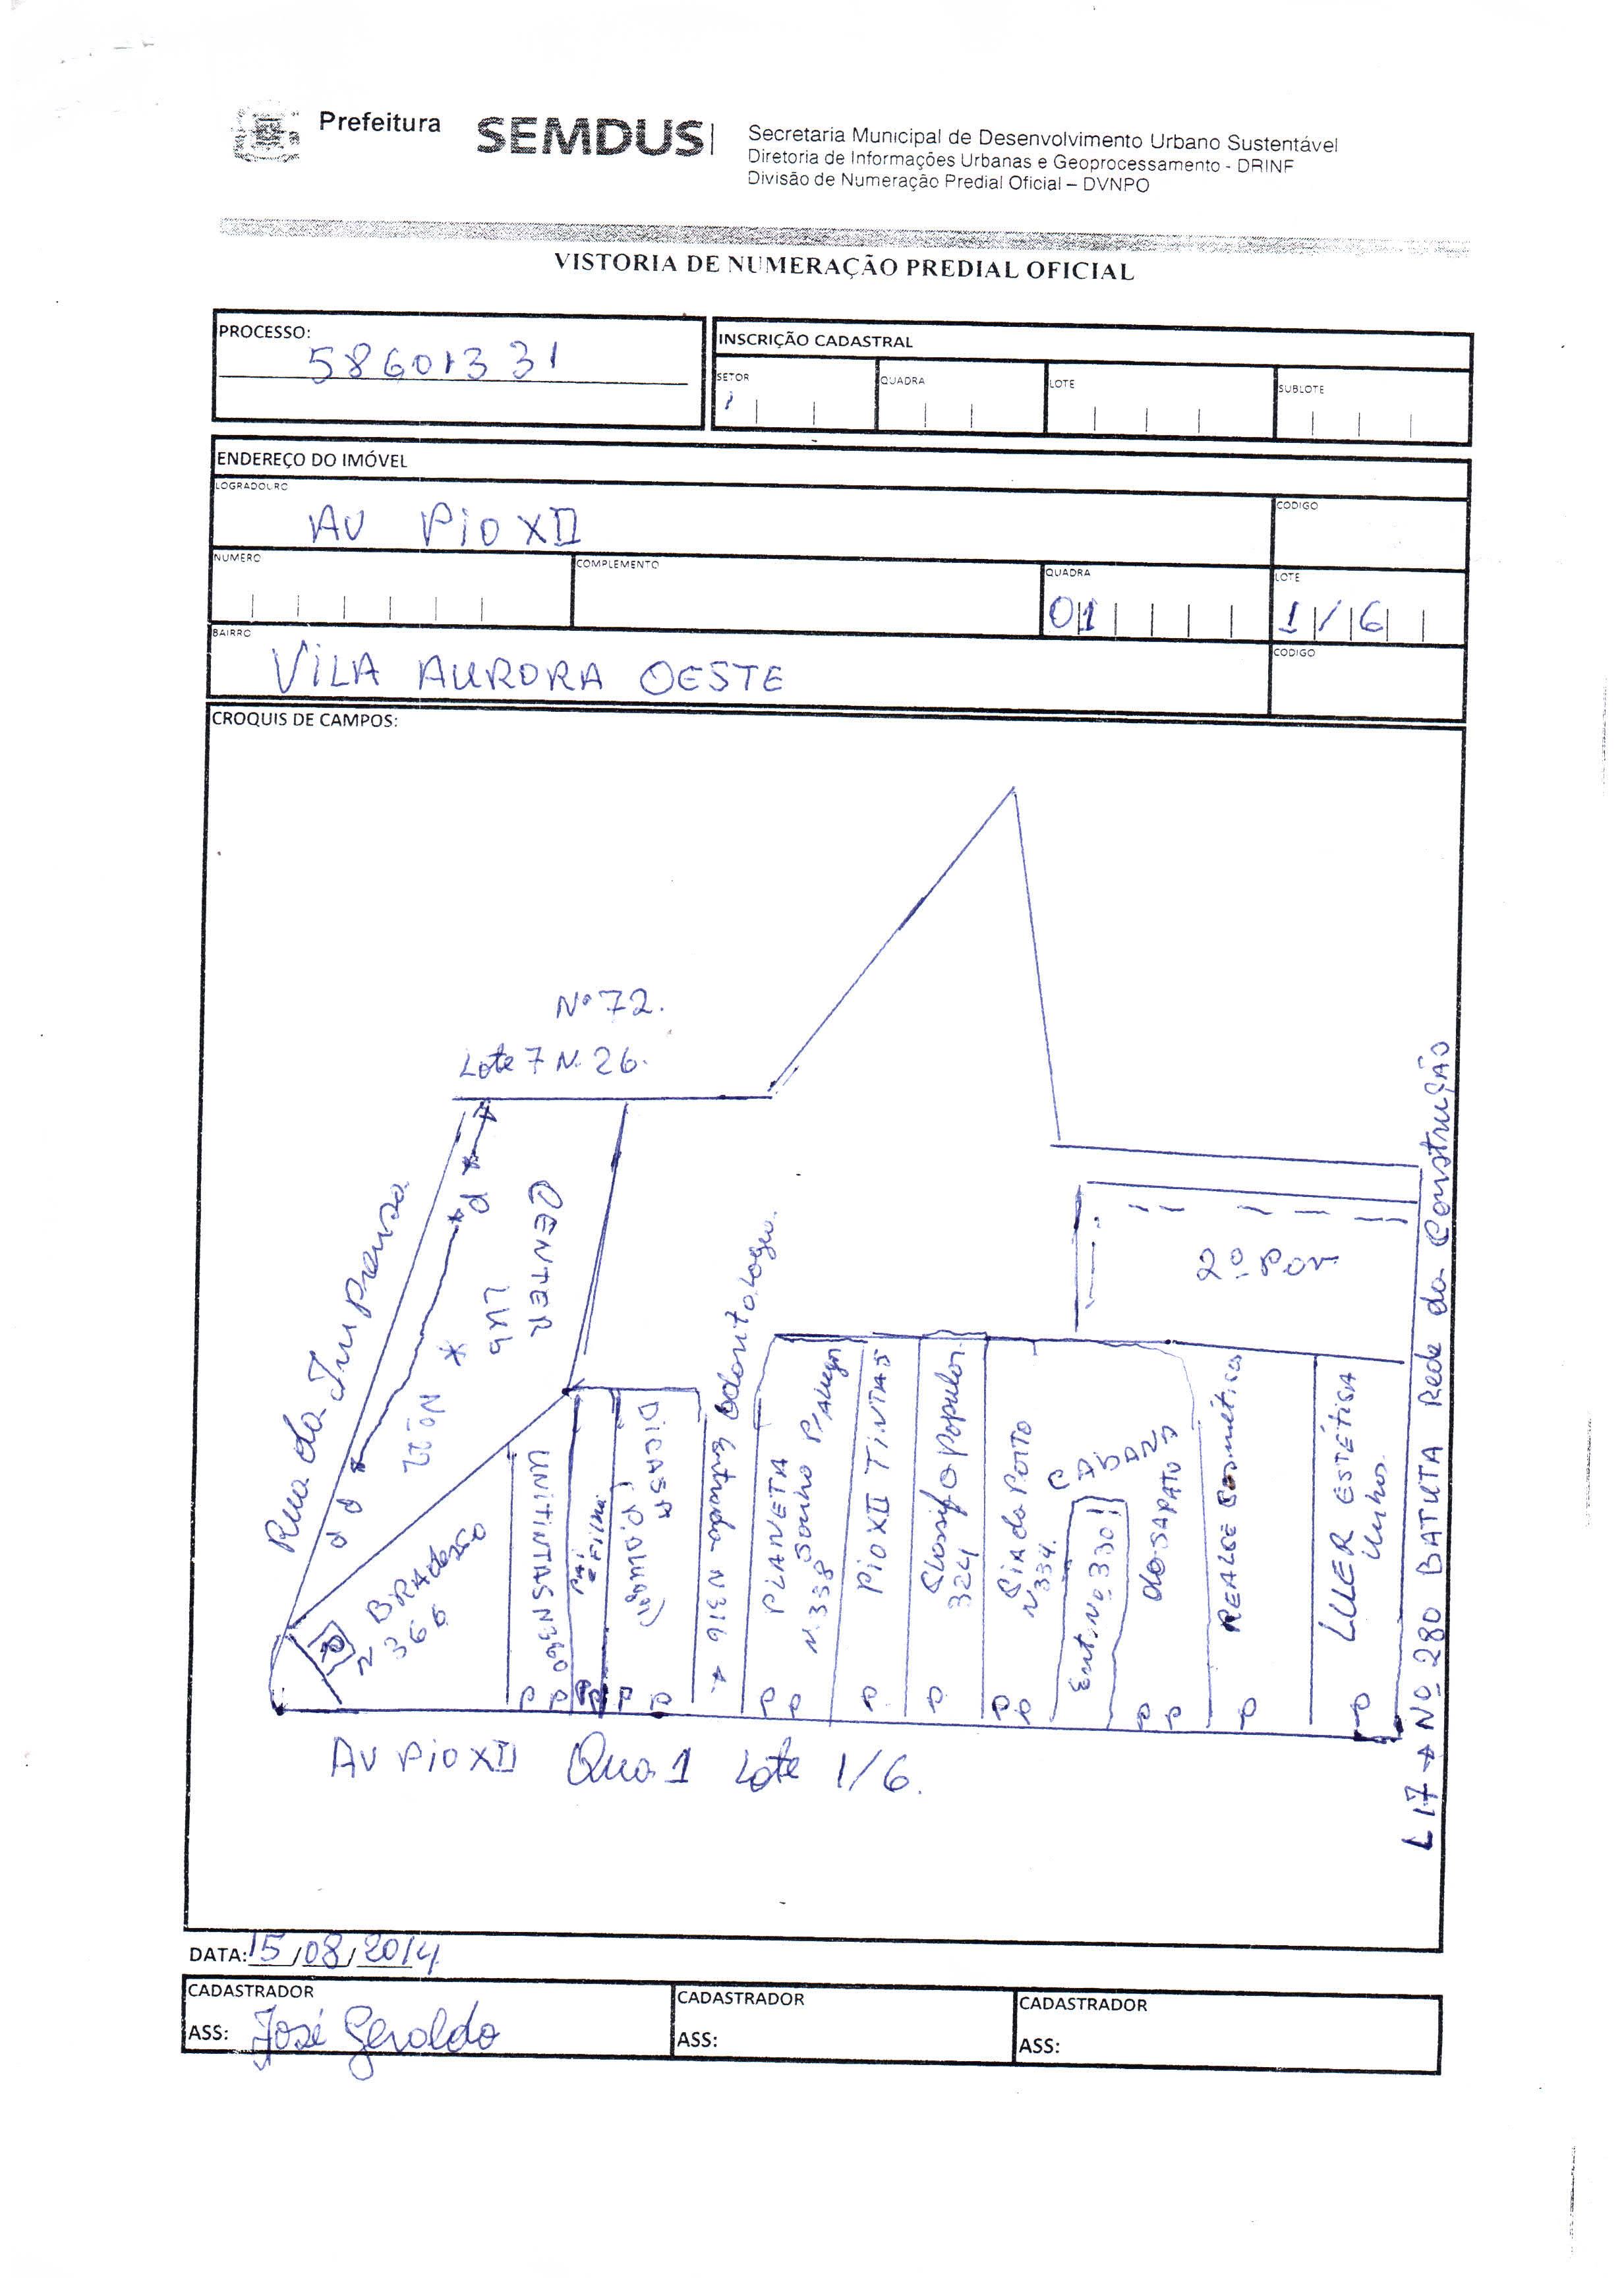 Prefeitura
SEMDUS
Secretaria Municipal de Desenvolvimento Urbano Sustentável
Diretoria de Informações Urbanas e Geoprocessamento - DRINF
Divisão de Numeração Predial Oficial – DVNPO
VISTORIA DE NUMERAÇÃO PREDIAL OFICIAL
PROCESSO:
58601331
INSCRIÇÃO CADASTRAL
SETOR
QUADRA
LOTE
SUBLOTE
ENDEREÇO DO IMÓVEL
LOGRADOURO
AV PIO XII
CODIGO
NUMERO
COMPLEMENTO
QUADRA
01
LOTE
1/6
BAIRRO
VILA AURORA OESTE
CODIGO
CROQUIS DE CAMPOS:
Nº 72.
Lote 7 N. 26.
Rua da Imprensa
CENTER
LUG
* Nº 22
2º Pav
N BRADESCO
366
UNITINTAS N 3460
PAI
E FILHO
DICASA
(P. Alugar)
Entrada N 319
Odontologia.
PLANETA
Sonho P/Alugar
N. 338
PIO XII TINTAS
Classifo Popular
324
Cia do Porto
Nº 334.
Ent. Nº 330
do SAPATO
REALCE Cosmética
LUER ESTÉTICA
Unhas
L 17 → Nº 280 BATUTA Rede da Construção
AV PIO XII Qua 1 Lote 1/6.
DATA: 15/08/2014
CADASTRADOR
ASS: José Geraldo
CADASTRADOR
ASS:
CADASTRADOR
ASS: